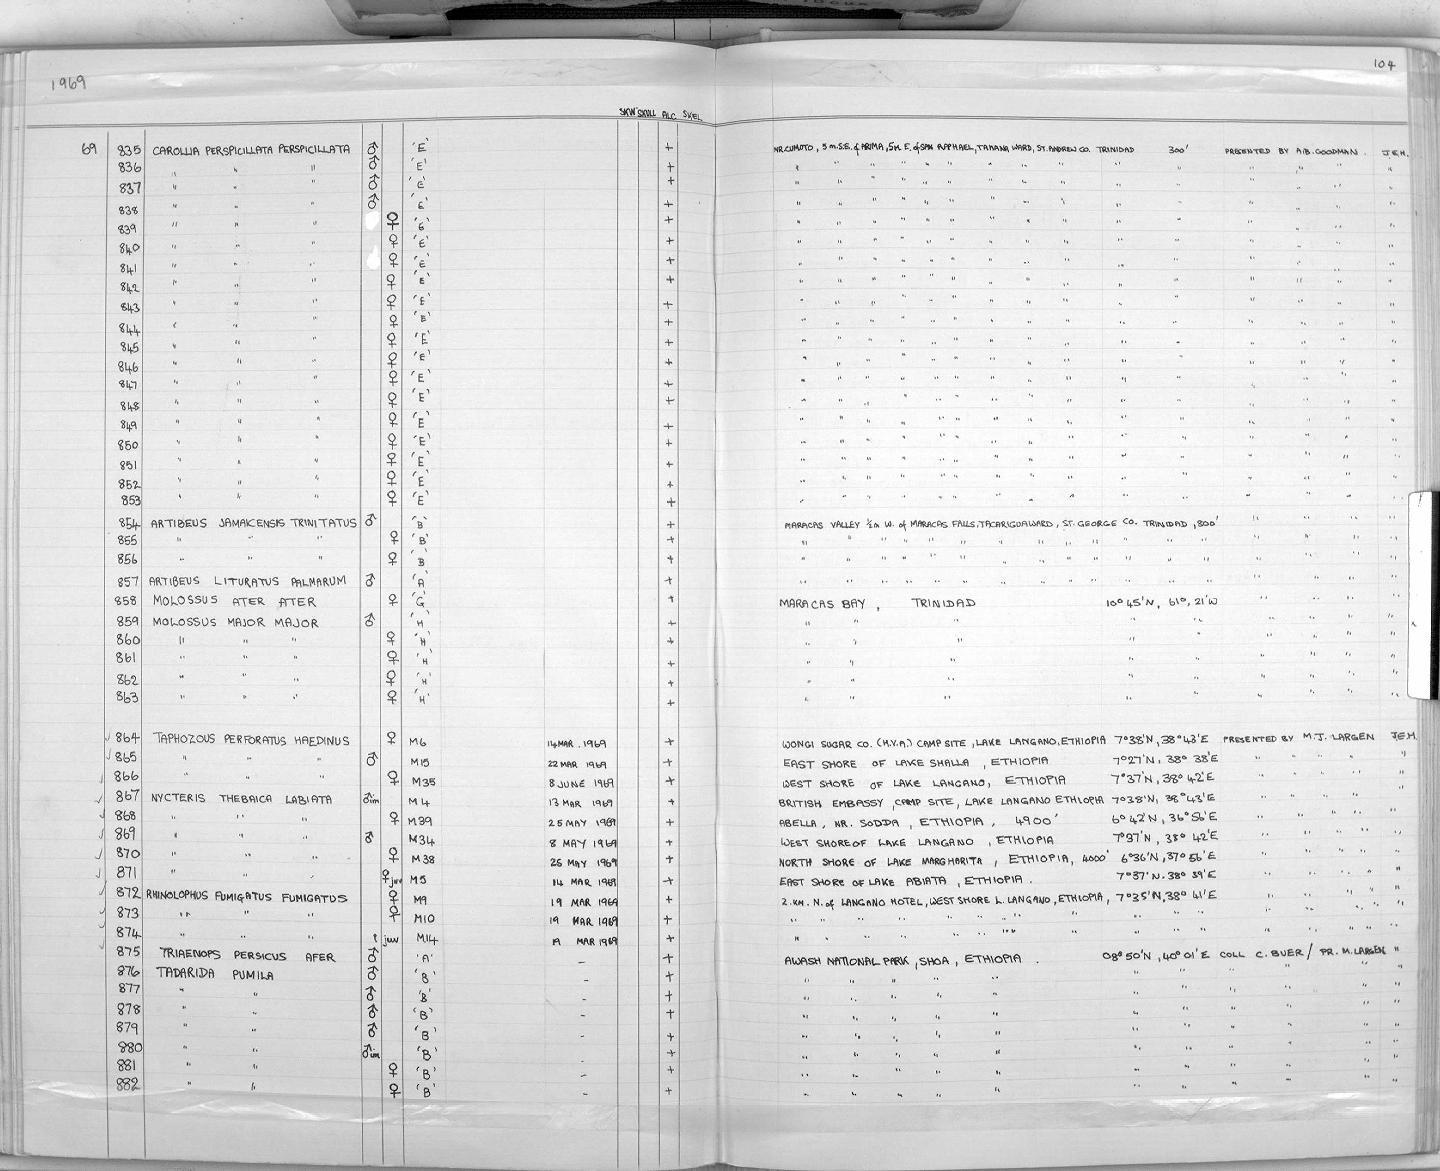 1969 104
SKIN SKULL ALC SKEL
69 835 CAROLLIA PERSPICILLATA PERSPICILLATA ♂ 'E' + NR. CUMOTO, 5 M.S.E. of ARIMA, 5M E. of SAN RAPHAEL, TAMANA WARD, ST. ANDREW CO. TRINIDAD 300' PRESENTED BY A.B. GOODMAN. J.E.H.
836 " " " ♂ 'E' + " " " " " " " " " " " " " " "
837 " " " ♂ 'E' + " " " " " " " " " " " " " " "
838 " " " ♂ 'E' + " " " " " " " " " " " " " " "
839 " " " ♀ 'E' + " " " " " " " " " " " " " " "
840 " " " ♀ 'E' + " " " " " " " " " " " " " " "
841 " " " ♀ 'E' + " " " " " " " " " " " " " " "
842 " " " ♀ 'E' + " " " " " " " " " " " " " " "
843 " " " ♀ 'E' + " " " " " " " " " " " " " " "
844 " " " ♀ 'E' + " " " " " " " " " " " " " " "
845 " " " ♀ 'E' + " " " " " " " " " " " " " " "
846 " " " ♀ 'E' + " " " " " " " " " " " " " " "
847 " " " ♀ 'E' + " " " " " " " " " " " " " " "
848 " " " ♀ 'E' + " " " " " " " " " " " " " " "
849 " " " ♀ 'E' + " " " " " " " " " " " " " " "
850 " " " ♀ 'E' + " " " " " " " " " " " " " " "
851 " " " ♀ 'E' + " " " " " " " " " " " " " " "
852 " " " ♀ 'E' + " " " " " " " " " " " " " " "
853 " " " ♀ 'E' + " " " " " " " " " " " " " " "
854 ARTIBEUS JAMAICENSIS TRINITATUS ♂ 'B' + MARACAS VALLEY ½m W. of MARACAS FALLS, TACARIGUA WARD, ST. GEORGE CO. TRINIDAD, 800' " " " "
855 " " " ♀ 'B' + " " " " " " " " " " " " " "
856 " " " ♀ 'B' + " " " " " " " " " " " " " "
857 ARTIBEUS LITURATUS PALMARUM ♂ 'A' + " " " " " " " " " " " " " "
858 MOLOSSUS ATER ATER ♀ 'G' + MARACAS BAY, TRINIDAD 10° 45'N, 61°, 21'W " " " "
859 MOLOSSUS MAJOR MAJOR ♂ 'H' + " " " " " " " " "
860 " " " ♀ 'H' + " " " " " " " " "
861 " " " ♀ 'H' + " " " " " " " " "
862 " " " ♀ 'H' + " " " " " " " " "
863 " " " ♀ 'H' + " " " " " " " " "
864 TAPHOZOUS PERFORATUS HAEDINUS ♀ M6 14 MAR. 1969 + WONGI SUGAR CO. (H.V.A.) CAMP SITE, LAKE LANGANO, ETHIOPIA 7°38'N, 38°43'E PRESENTED BY M.J. LARGEN J.E.H.
865 " " " ♂ M15 22 MAR 1969 + EAST SHORE OF LAKE SHALLA, ETHIOPIA 7°27'N, 38° 38'E " " " " "
866 " " " ♀ M35 8 JUNE 1969 + WEST SHORE OF LAKE LANGANO, ETHIOPIA 7°37'N, 38° 42'E " " " " "
867 NYCTERIS THEBAICA LABIATA ♂im M4 13 MAR 1969 + BRITISH EMBASSY, CAMP SITE, LAKE LANGANO ETHIOPIA 7°38'N, 38°43'E " " " " "
868 " " " ♀ M39 25 MAY 1969 + ABELLA, NR. SODDA, ETHIOPIA, 4900' 6° 42'N, 36°56'E " " " " "
869 " " " ♂ M34 8 MAY 1969 + WEST SHORE OF LAKE LANGANO, ETHIOPIA 7°37'N, 38° 42'E " " " " "
870 " " " ♀ M38 25 MAY 1969 + NORTH SHORE OF LAKE MARGHARITA, ETHIOPIA, 4000' 6°36'N, 37°56'E " " " " "
871 " " " ♀juv M5 14 MAR 1969 + EAST SHORE OF LAKE ABIATA, ETHIOPIA. 7°37'N. 38° 39'E " " " " "
872 RHINOLOPHUS FUMIGATUS FUMIGATUS ♀ M9 19 MAR 1969 + 2. KM. N. of LANGANO HOTEL, WEST SHORE L. LANGANO, ETHIOPIA, 7°35'N, 38° 41'E " " " " "
873 " " " ♀ M10 19 MAR 1969 + " " " " " " " " " " " " "
874 " " " juv M14 19 MAR 1969 + " " " " " " " " " " " " "
875 TRIAENOPS PERSICUS AFER ♂ 'A' - + AWASH NATIONAL PARK, SHOA, ETHIOPIA. 08° 50'N, 40° 01'E COLL C. BUER / PR. M. LARGEN "
876 TADARIDA PUMILA ♂ 'B' - + " " " " " " " " " " " "
877 " " ♂ 'B' - + " " " " " " " " " " " "
878 " " ♂ 'B' - + " " " " " " " " " " " "
879 " " ♂ 'B' - + " " " " " " " " " " " "
880 " " ♂im 'B' - + " " " " " " " " " " " "
881 " " ♀ 'B' - + " " " " " " " " " " " "
882 " " ♀ 'B' - + " " " " " " " " " " " "